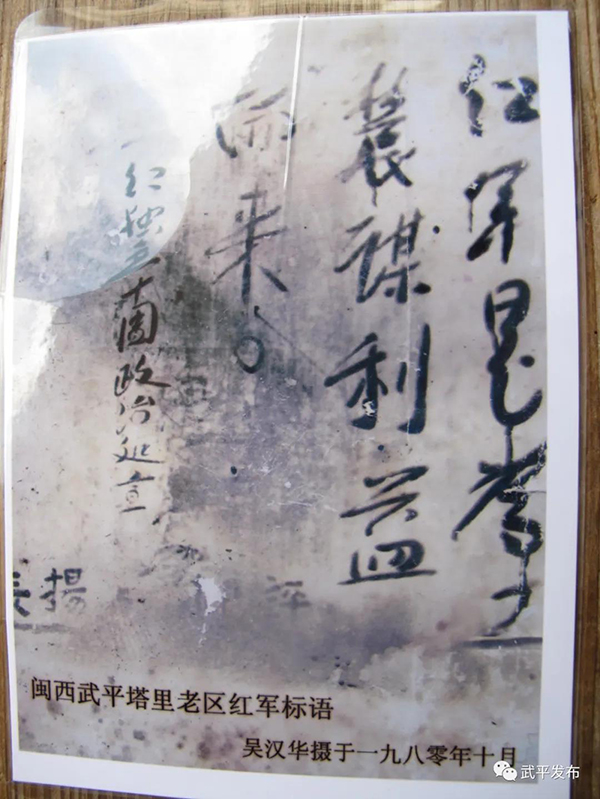 红军是
農謀利益
而来。
红独立團政治处宣
長揚
闽西武平塔里老区红军标语
吴汉华摄于一九八零年十月
武平发布